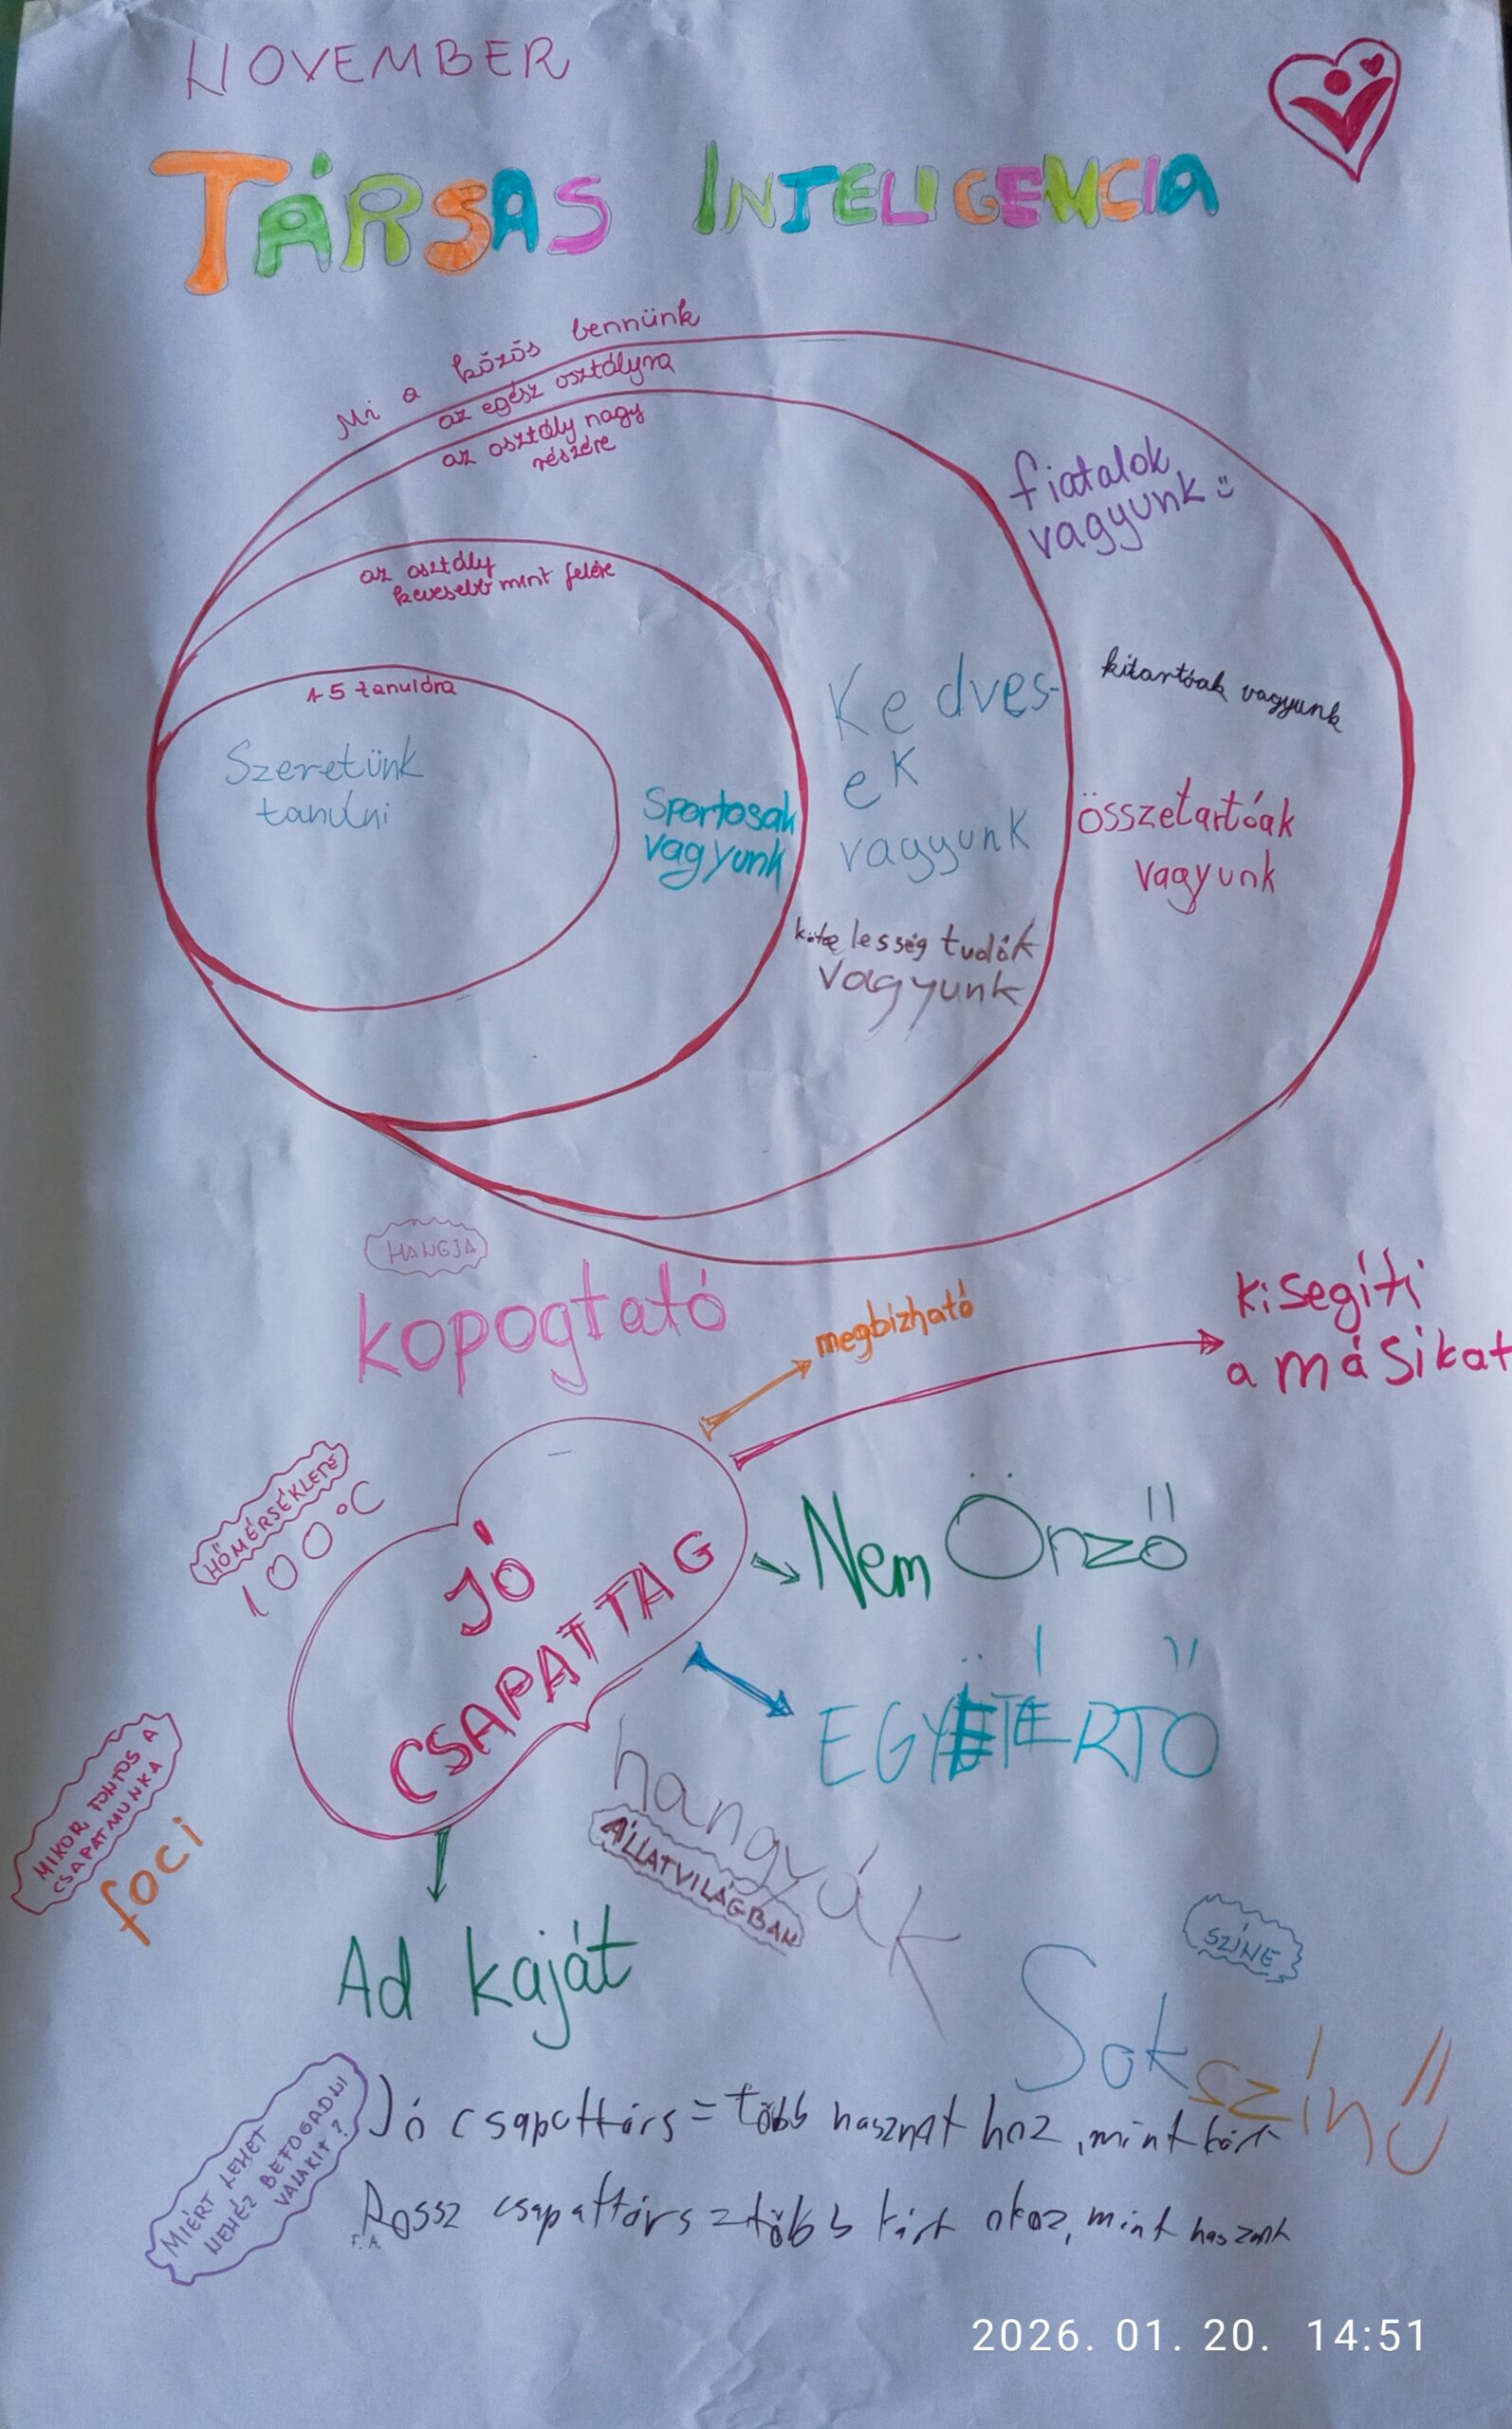 NOVEMBER
TÁRSAS INTELIGENCIA
Mi a közös bennünk
az egész osztályra
az osztály nagy
részére
az osztály
kevesebb mint felére
1-5 tanulóra
fiatalok
vagyunk
kitartóak vagyunk
Kedves-
ek
vagyunk
Szeretünk
tanulni
Sportosak
vagyunk
összetartóak
vagyunk
kötelesség tudók
vagyunk
HANGJA
kopogtató
megbízható
kisegíti
a másikat
HŐMÉRSÉKLETE
100 °C
JÓ
CSAPATTAG
Nem Önző
EGYETÉRTŐ
MIKOR FONTOS A
CSAPATMUNKA
foci
hangyák
ÁLLATVILÁGBAN
Ad kaját
SZÍNE
Sokszínű
MIÉRT LEHET
NEHÉZ BEFOGADNI
VALAKIT?
Jó csapattárs = több hasznot hoz, mint kárt
Rossz csapattárs = több kárt okoz, mint hasznot
2026. 01. 20. 14:51